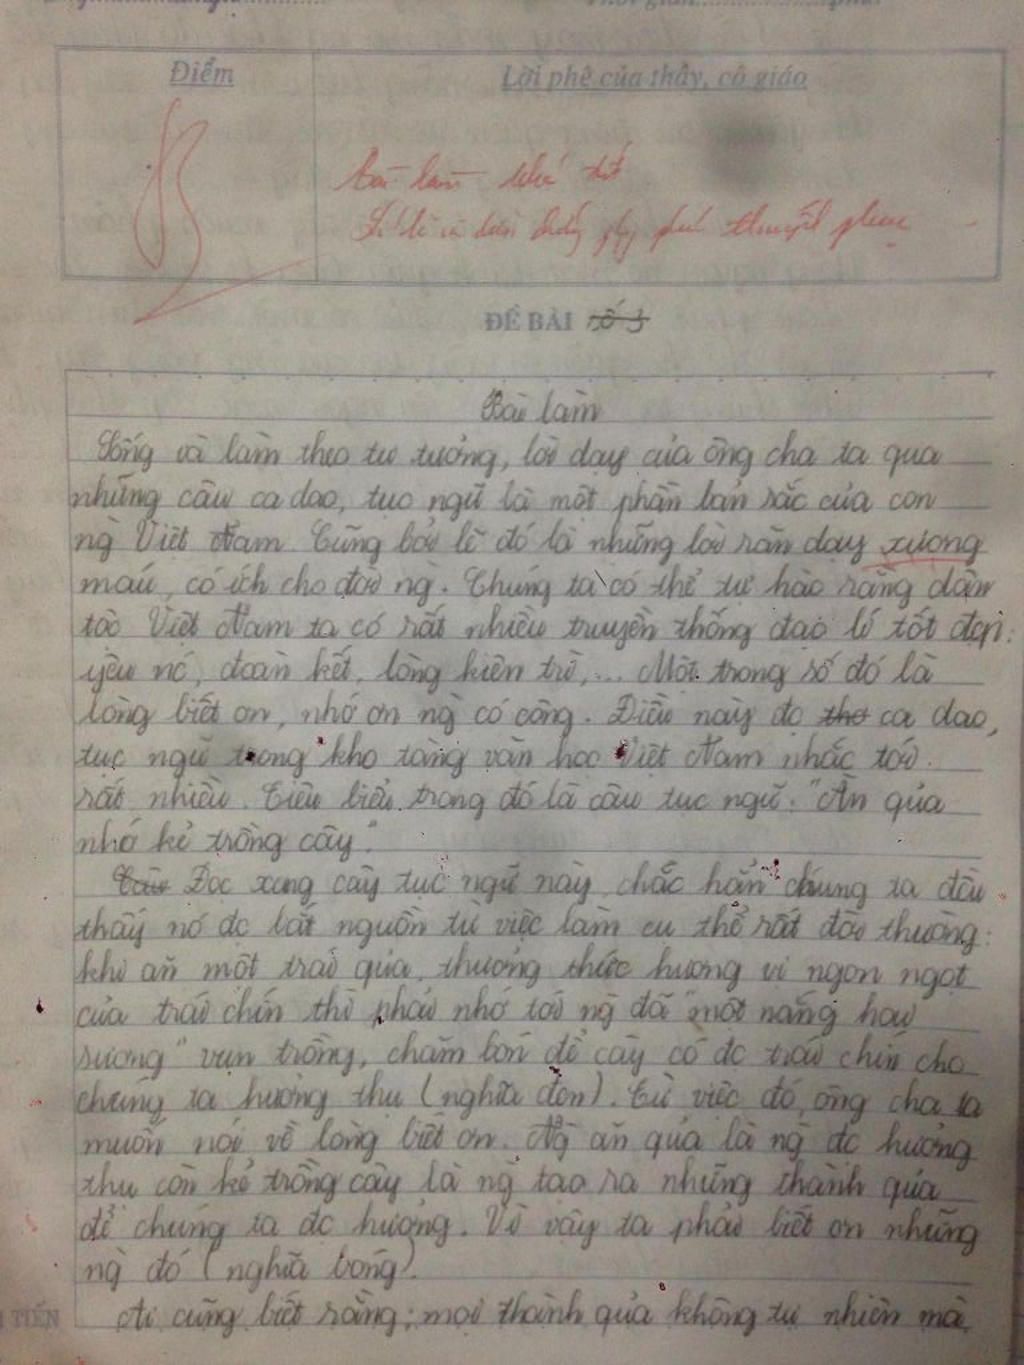 Điểm
Lời phê của thầy, cô giáo
Bài làm khá tốt
Lí lẽ và dẫn chứng thuyết phục
ĐỀ BÀI số 3
Bài làm
Sống và làm theo tư tưởng, lời dạy của ông cha ta qua
những câu ca dao, tục ngữ là một phần bản sắc của con
ng` Việt Nam. Cũng bởi lẽ đó là những lời răn dạy xương
máu, có ích cho đời ng`. Chúng ta có thể tự hào rằng dân
tộc Việt Nam ta có rất nhiều truyền thống đạo lí tốt đẹp:
yêu nc, đoàn kết, lòng kiên trì,... Một trong số đó là
lòng biết ơn, nhớ ơn ng` có công. Điều này đc thơ ca dao,
tục ngữ trong kho tàng văn học Việt Nam nhắc tới
rất nhiều. Tiêu biểu trong đó là câu tục ngữ: "Ăn qủa
nhớ kẻ trồng cây".
Câu Đọc xong cây tục ngữ này chắc hẳn chúng ta đều
thấy nó đc bắt nguồn từ việc làm cụ thể rất đời thường:
khi ăn một trái qủa, thưởng thức hương vị ngon ngọt
của trái chín thì phải nhớ tới ng` đã "một nắng hai
sương" vun trồng, chăm bón để cây có đc trái chín cho
chúng ta hưởng thụ (nghĩa đen). Từ việc đó, ông cha ta
muốn nói về lòng biết ơn. Ng` ăn qủa là ng` đc hưởng
thụ còn kẻ trồng cây là ng` tạo ra những thành qủa
để chúng ta đc hưởng. Vì vậy ta phải biết ơn những
ng` đó (nghĩa bóng).
TIẾN
Ai cũng biết rằng: mọi thành qủa không tự nhiên mà